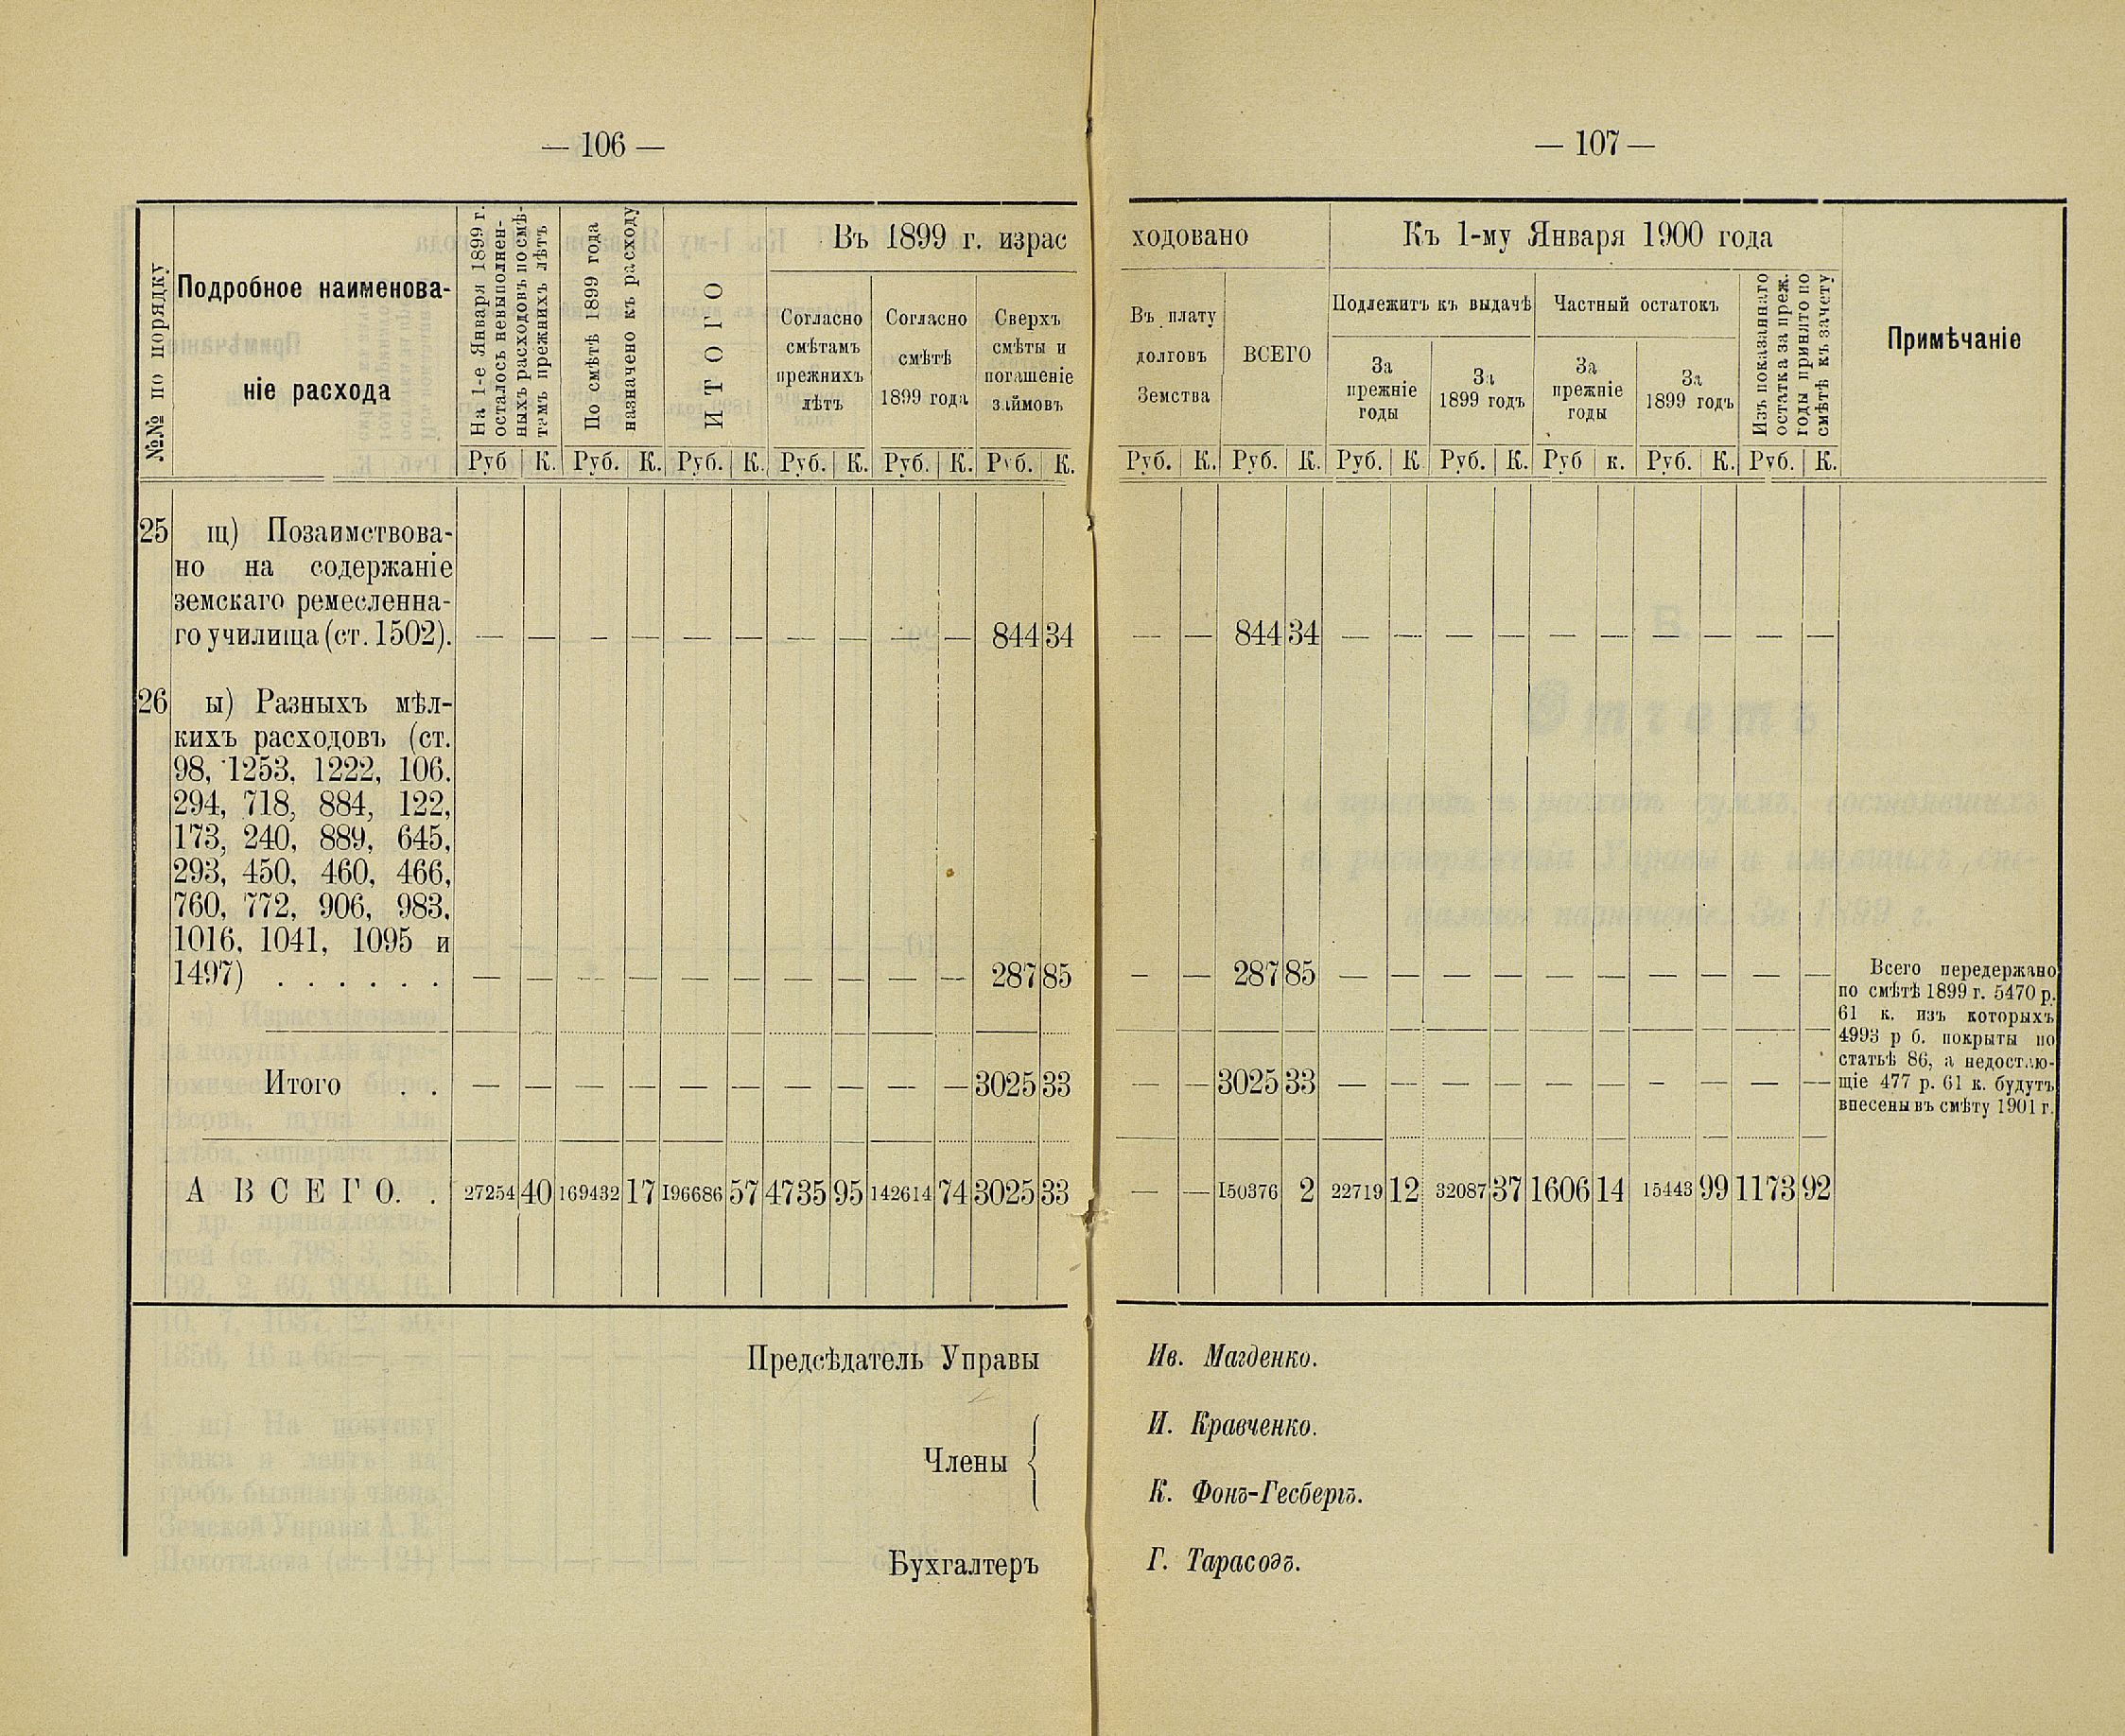 — 106 —
№№ по порядку
Подробное наименова-
ніе расхода
На 1-е Января 1899 г.
осталось невыполнен-
ныхъ расходовъ по смѣ-
тамъ прежнихъ лѣтъ
По смѣтѣ 1899 года
назначено къ расходу
ИТОГО
Въ 1899 г. израс
Согласно
смѣтамъ
прежнихъ
лѣтъ
Согласно
смѣтѣ
1899 года
Сверхъ
смѣты и
погашеніе
займовъ
Руб К. Руб. К. Руб. К. Руб. К. Руб. К. Руб. К.
25 щ) Позаимствова-
но на содержаніе
земскаго ремесленна-
го училища (ст. 1502). — — — — — — — — — — 844 34
26 ы) Разныхъ мѣл-
кихъ расходовъ (ст.
98, 1253, 1222, 106.
294, 718, 884, 122,
173, 240, 889, 645,
293, 450, 460, 466,
760, 772, 906, 983,
1016, 1041, 1095 и
1497) . . . . . . — — — — — — — — — — 287 85
Итого . . — — — — — — — — — — 3025 33
А ВСЕГО. . 27254 40 169432 17 196686 57 4735 95 142614 74 3025 33
Предсѣдатель Управы
Члены
Бухгалтеръ
— 107 —
ходовано
Въ плату
долговъ
Земства
ВСЕГО
Къ 1-му Января 1900 года
Подлежитъ къ выдачѣ
За
прежніе
годы
За
1899 годъ
Частный остатокъ
За
прежніе
годы
За
1899 годъ
Изъ показаннаго
остатка за преж.
годы принято по
смѣтѣ къ зачету
Примѣчаніе
Руб. К. Руб. К. Руб. К Руб. К. Руб к. Руб. К. Руб. К.
— — 844 34 — — — — — — — — — —
— — 287 85 — — — — — — — — — —
— — 3025 33 — — — — — — — — — —
— — 150376 2 22719 12 32087 37 1606 14 15443 99 1173 92
Всего передержано
по смѣтѣ 1899 г. 5470 р.
61 к. изъ которыхъ
4993 р б. покрыты по
статьѣ 86, а недостаю-
щіе 477 р. 61 к. будутъ
внесены въ смѣту 1901 г.
Ив. Магденко.
И. Кравченко.
К. Фонъ-Гесбергъ.
Г. Тарасовъ.